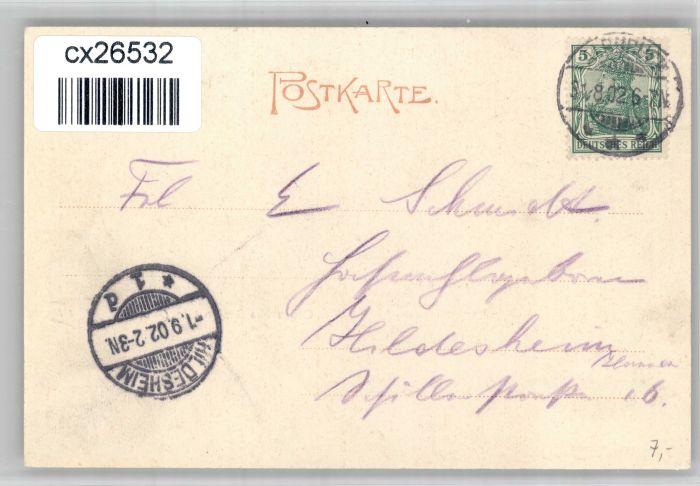 cx26532
POSTKARTE.
5 5
DEUTSCHES REICH
8.02.6
Frl E Schmidt.
Hildesheim
Hannover
Schillerstraße 16.
HILDESHEIM
-1.9.02.2-3N.
* 1 d
7,-